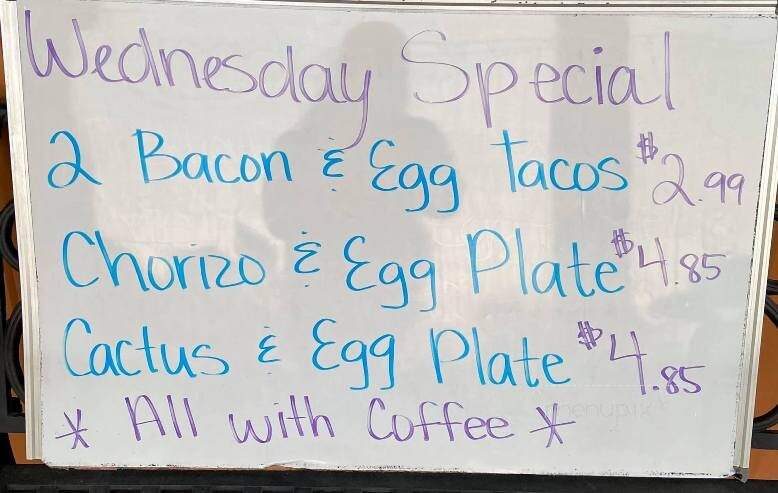 Wednesday Special
2 Bacon & Egg Tacos $2.99
Chorizo & Egg Plate $4.85
Cactus & Egg Plate $4.85
* All with Coffee *
menupix